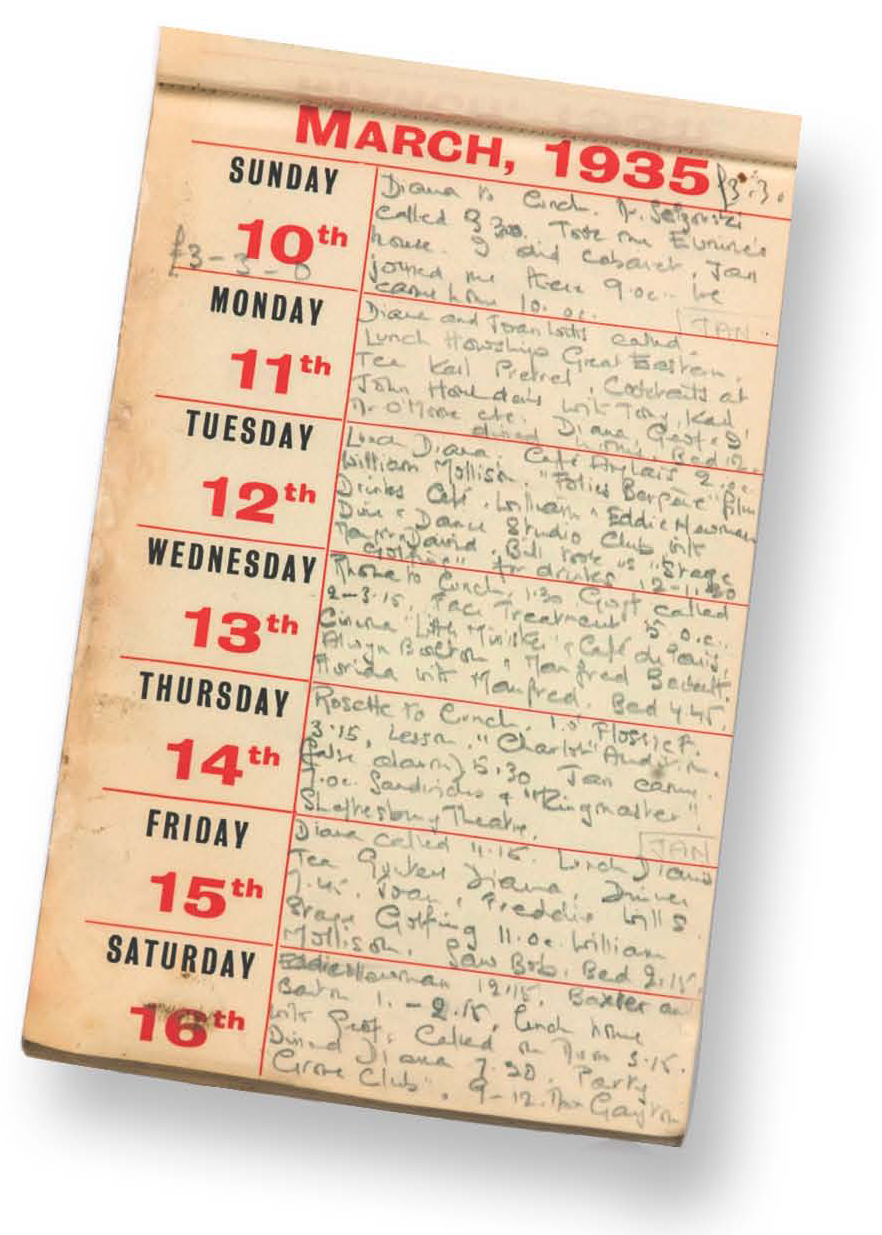 MARCH, 1935 £3.3.
SUNDAY
10th
£3-3-0
Diana to Lunch. Dr.
called 8.30. Took me Eunice's
house. I did cabaret. Jan
joined me there 9.oc. we
came home 10.oc.
JAN.
MONDAY
11th
Diana and Joan called.
Lunch Howships Great Eastern.
Tea Karl Pretzel. Cocktails at
John with Tony, Karl,
Mr O'Moore etc. Diana, Geoff & I
dined home. Bed
TUESDAY
12th
Lunch Diana. Café Anglais 2.oc
William Mollison. "Folies Bergère" film
Drinks Café. William & Eddie Newman
Dine & Dance Studio Club with
David. Bill took us "Stage
Golfing" for drinks 12-11.30
WEDNESDAY
13th
Rhona to Lunch. 1.30 Geoff called
2-3.15. Face Treatment 5 o.c.
Cinema "Little Minister" & Café de Paris.
Alwyn & Manfred
Florida with Manfred. Bed 4.45.
THURSDAY
14th
Rosette to Lunch. Flossie F.
3.15, Lesson. "Charlot" Audition.
(false alarm) 5.30 Jan came
7.oc. Sandwiches & "Ringmaster".
Shaftesbury Theatre.
JAN
FRIDAY
15th
Diana called 11.15. Lunch Diana
Tea Diana, Dinner
7.45. Joan, Freddie Wills
Stage Golfing 11.oc. William
Mollison. Saw Bob. Bed 2.15.
SATURDAY
16th
Eddie Newman 12.15. Baxter and
1.-2.15, Lunch home
with Geoff. Called on Mum 3.15.
Dined Diana 7.30. Party
Grove Club". 9-12.